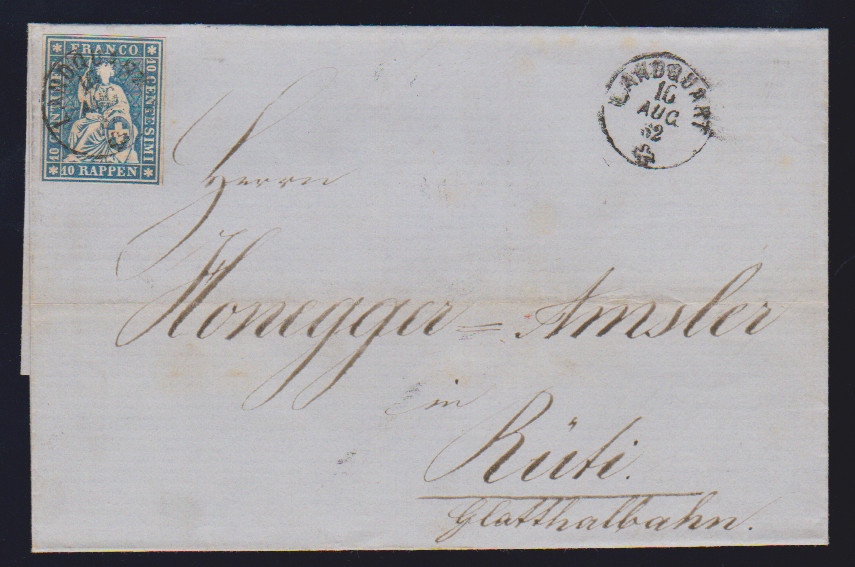 FRANCO
10 CENTIMES
10 CENTESIMI
10 RAPPEN
LANDQUART
LANDQUART
16
AUG
62
Herrn
Honegger=Amsler
in
Rüti.
Glatthalbahn.